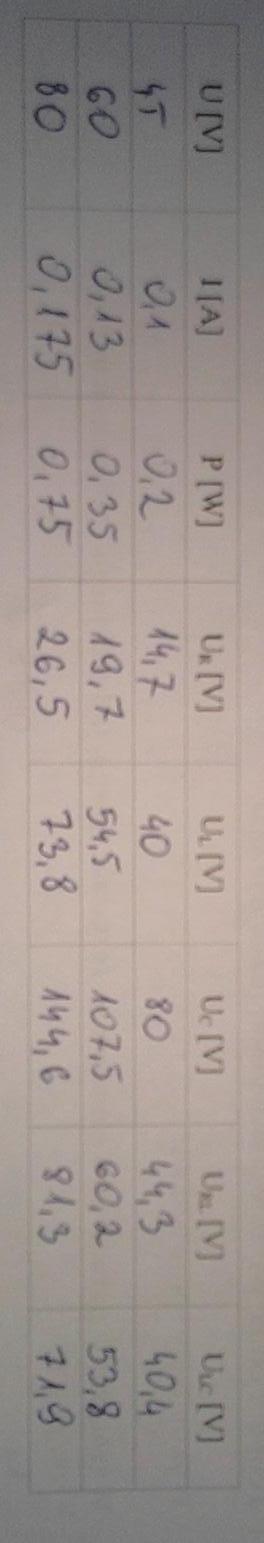 U[V] I[A] P[W] U_R[V] U_L[V] U_C[V] U_RL[V] U_LC[V]
45 0,1 0,2 14,7 40 80 44,3 40,4
60 0,13 0,35 19,7 54,5 107,5 60,2 53,8
80 0,175 0,75 26,5 73,8 144,6 81,3 71,9